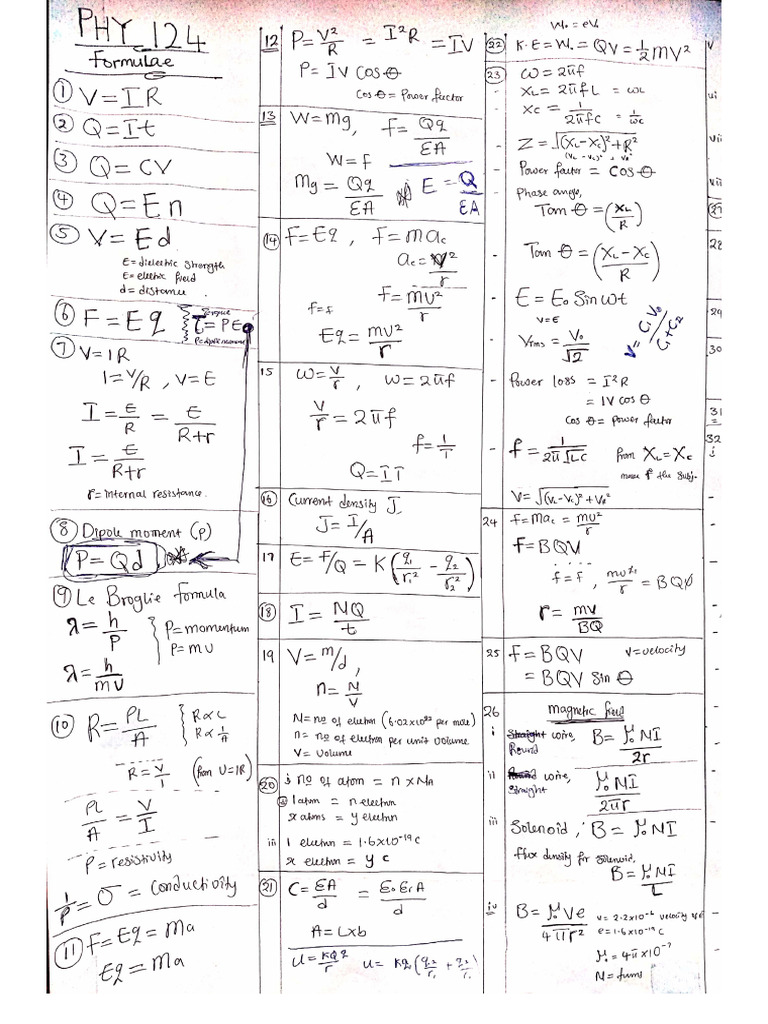 PHY 124
Formulae
① V = IR
② Q = It
③ Q = CV
④ Q = En
⑤ V = Ed
E = dielectric strength
E = electric field
d = distance
⑥ F = Eq
Torque
τ = PE
P = dipole moment
⑦ V = IR
I = V/R , V = E
I = E/R = E/(R+r)
I = E/(R+r)
r = internal resistance.
⑧ Dipole moment (p)
P = Qd
⑨ Le Broglie formula
λ = h/P
P = momentum
P = mv
λ = h/mv
⑩ R = PL/A
R ∝ L
R ∝ 1/A
R = V/I (from V = IR)
PL/A = V/I
P = resistivity
1/P = σ = conductivity
⑪ F = Eq = Ma
Eq = Ma
12 P = V²/R = I²R = IV
P = IV cos θ
cos θ = Power factor
13 W = Mg, f = Qq/EA
W = f
Mg = Qq/EA
E = Q/EA
⑭ F = Eq , F = mac
ac = v²/r
f = mv²/r
f = f
Eq = mv²/r
15 ω = v/r , ω = 2πf
v/r = 2πf
f = 1/T
Q = IT
⑯ Current density J.
J = I/A
17 E = F/Q = K(q₁/r₁² - q₂/r₂²)
⑱ I = NQ/t
19 V = m/d,
n = N/V
N = no of electron (6.02x10²³ per mole)
n = no of electron per unit volume
V = Volume
⑳ i no of atom = n x NA
ii 1 atom = n electron
x atoms = y electron
iii 1 electron = 1.6x10⁻¹⁹ C
x electron = y C
㉑ C = EA/d = E₀ErA/d
A = L x b
U = KQ²/r
W₀ = eV
㉒ K.E = W₀ = QV = ½mV²
㉓ ω = 2πf
XL = 2πfL = ωL
XC = 1/2πfC = 1/ωC
Z = √(XL-XC)²+R²
Power factor = cos θ
Phase angle,
Tan θ = (XL/R)
Tan θ = (XL-XC/R)
E = E₀ Sin ωt
V = E
Vrms = V₀/√2
V = C₁V₀/C₁+C₂
Power loss = I²R
= IV cos θ
cos θ = power factor
f = 1/2π√LC from XL = XC
make f the subj.
24 f = mac = mv²/r
F = BQV
f = f , mv²/r = BQV
r = mv/BQ
25 f = BQV V = velocity
= BQV Sin θ
26 magnetic field
i Round wire, B = μ₀NI/2r
ii Straight wire, μ₀NI/2πr
iii Solenoid, B = μ₀NI
flux density for solenoid,
B = μ₀NI/L
iv B = μ₀Ve/4πr²
e = 1.6x10⁻¹⁹ C
μ₀ = 4πx10⁻⁷
N = turns